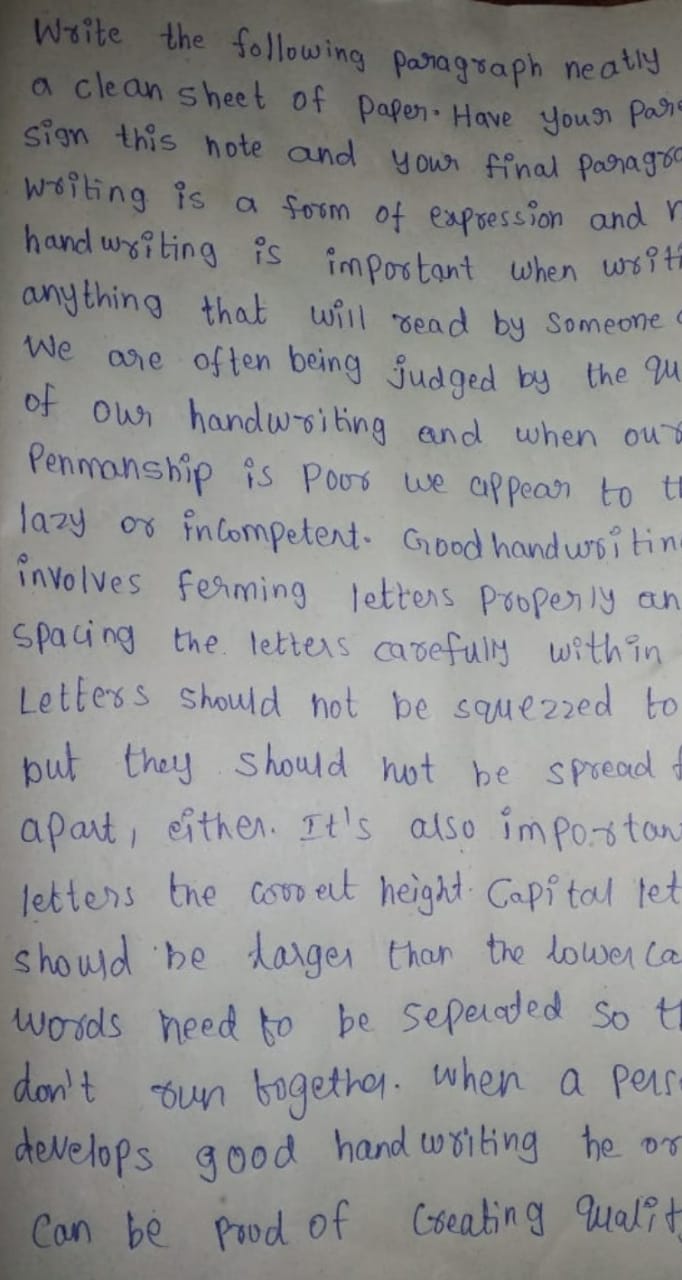 Write the following paragraph neatly
a clean sheet of paper. Have your par
sign this note and your final paragra
writing is a form of expression and n
handwriting is important when writi
anything that will read by someone
We are often being judged by the qu
of our handwriting and when our
Penmanship is poor we appear to t
lazy or incompetent. Good handwritin
involves ferming letters properly an
spacing the letters carefully within
Letters should not be squezzed to
but they should not be spread f
apart, either. It's also importan
letters the correct height. Capital let
should be larger than the lower ca
words need to be seperated so th
don't run together. When a pers
develops good handwriting he or
can be proud of creating qualit